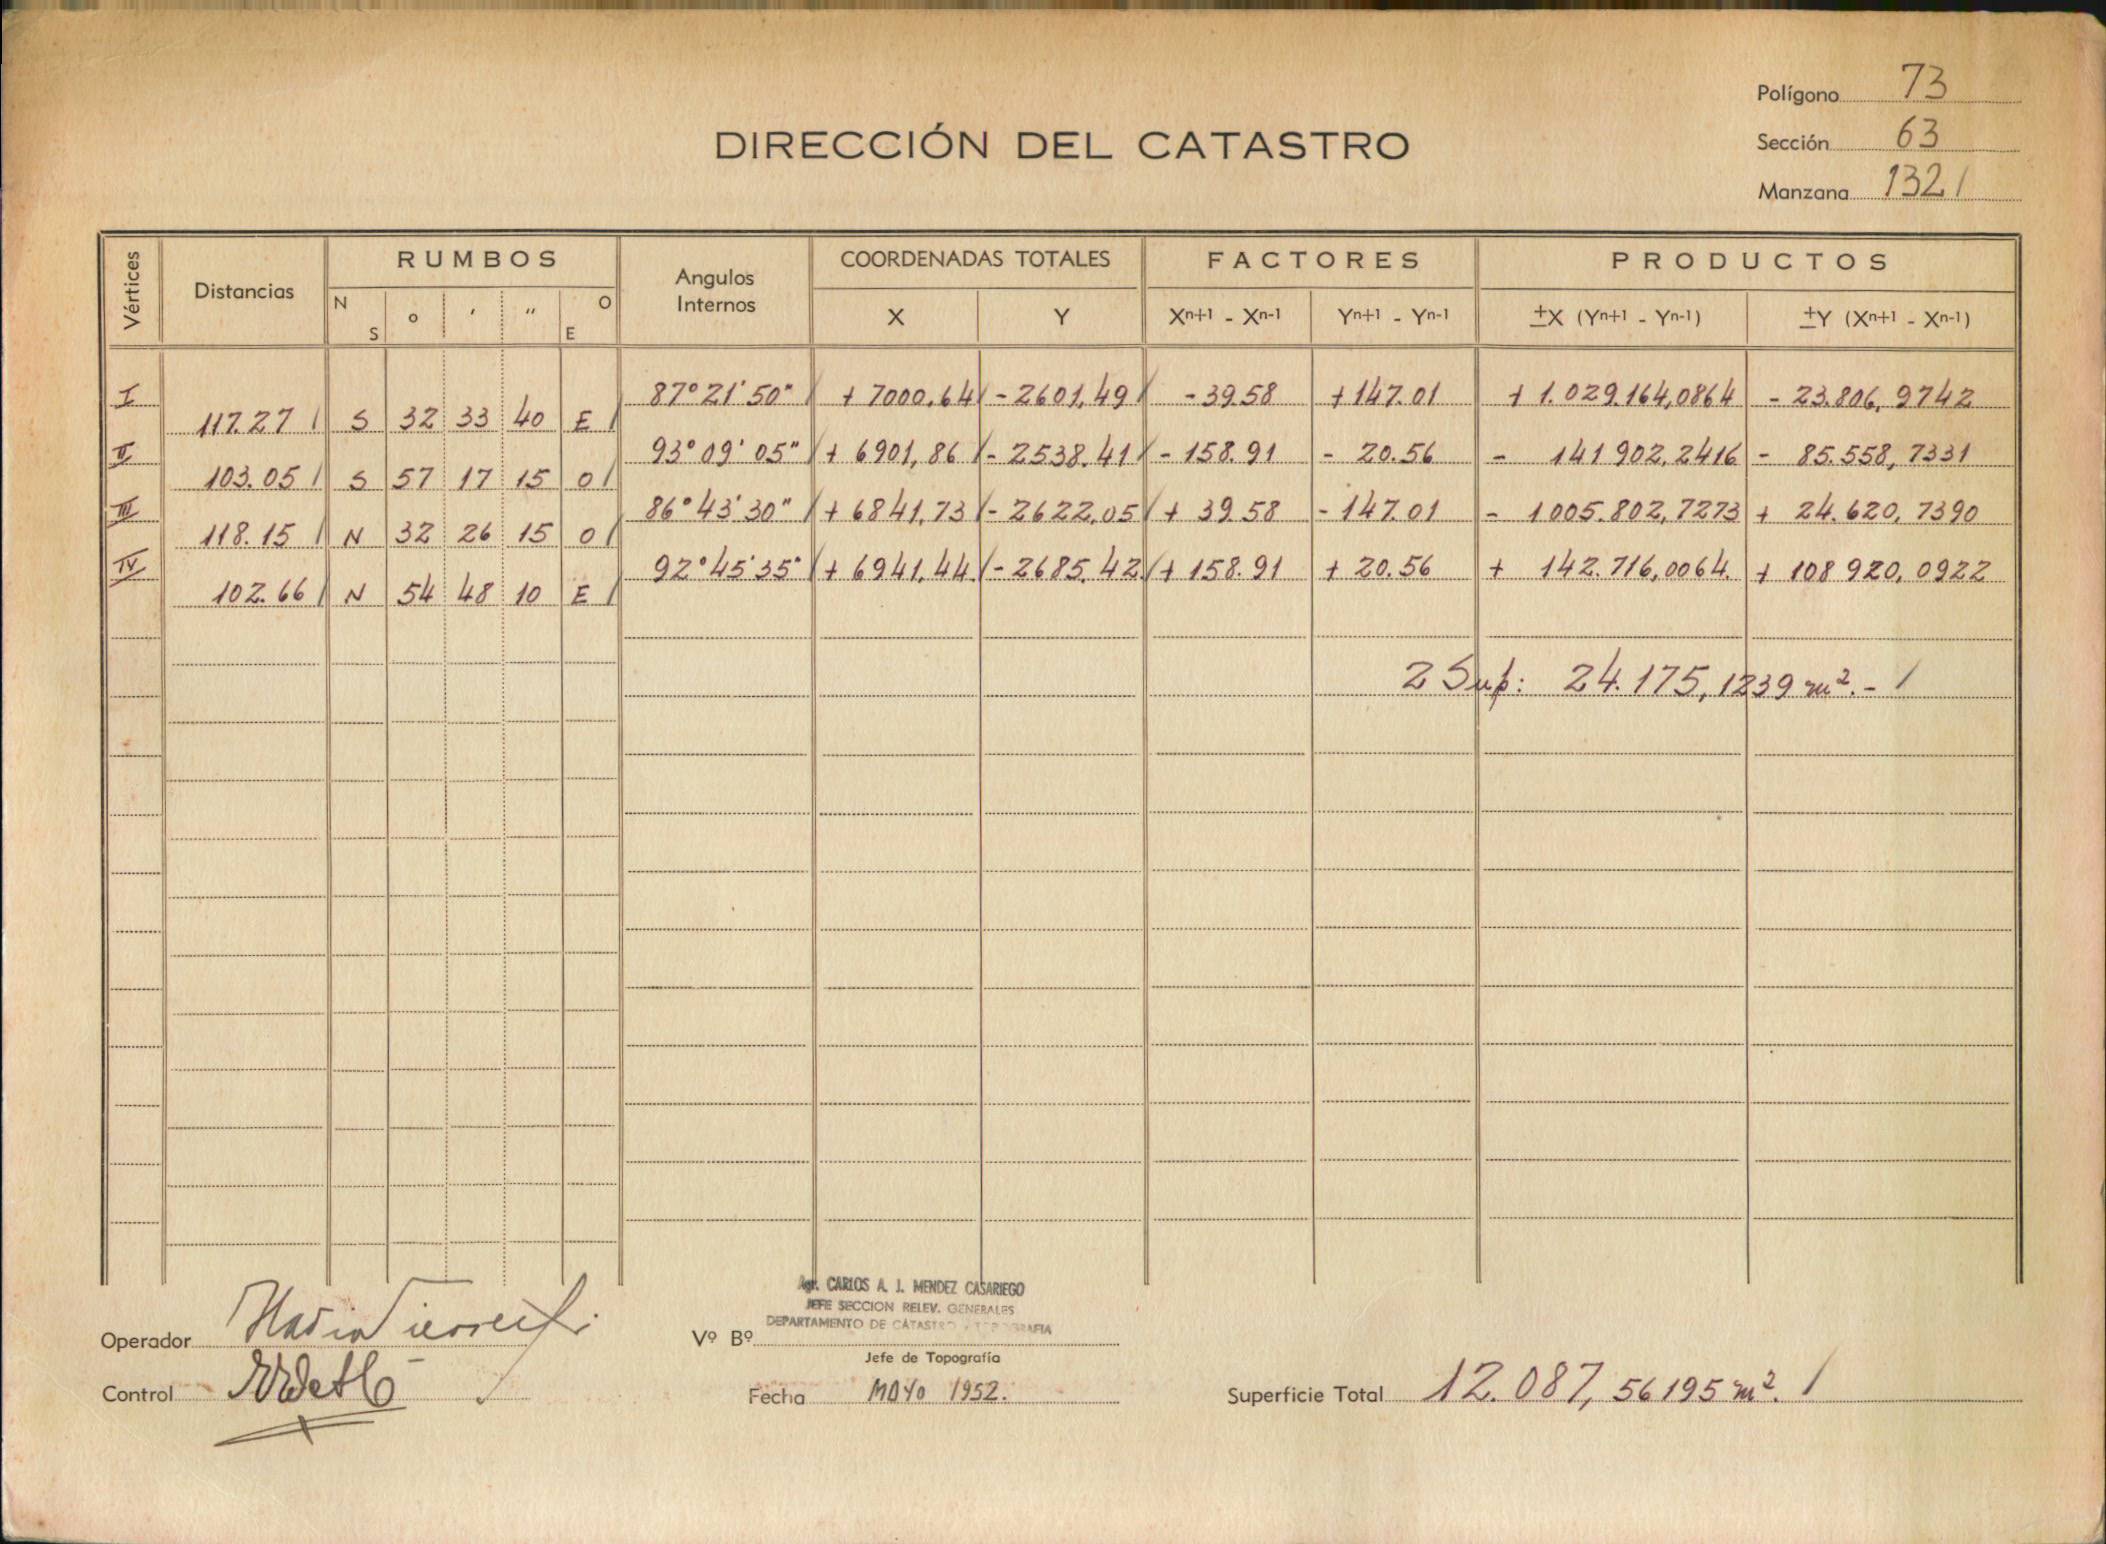 Polígono 73
DIRECCIÓN DEL CATASTRO
Sección 63
Manzana 132
Vértices Distancias RUMBOS Angulos Internos COORDENADAS TOTALES FACTORES PRODUCTOS
N S ° ′ ″ O E X Y Xn+1 - Xn-1 Yn+1 - Yn-1 ±X (Yn+1 - Yn-1) ±Y (Xn+1 - Xn-1)
I 87°21'50" + 7000,64 - 2601,49 - 39.58 + 147.01 + 1.029.164,0864 - 23.806,9742
117.27 S 32 33 40 E
II 93°09'05" + 6901,86 - 2538.41 - 158.91 - 20.56 - 141902,2416 - 85.558,7331
103.05 S 57 17 15 O
III 86°43'30" + 6841,73 - 2622,05 + 39.58 - 147.01 - 1005.802,7273 + 24.620,7390
118.15 N 32 26 15 O
IV 92°45'35" + 6941,44 - 2685.42 + 158.91 + 20.56 + 142.716,0064 + 108920,0922
102.66 N 54 48 10 E
2 Sup: 24.175,1239 m². -
Agr. CARLOS A. J. MENDEZ CASARIEGO
JEFE SECCION RELEV. GENERALES
DEPARTAMENTO DE CATASTRO Y TOPOGRAFIA
Operador
Vº Bº
Jefe de Topografía
Control
Fecha MAYO 1952.
Superficie Total 12.087,56195 m².